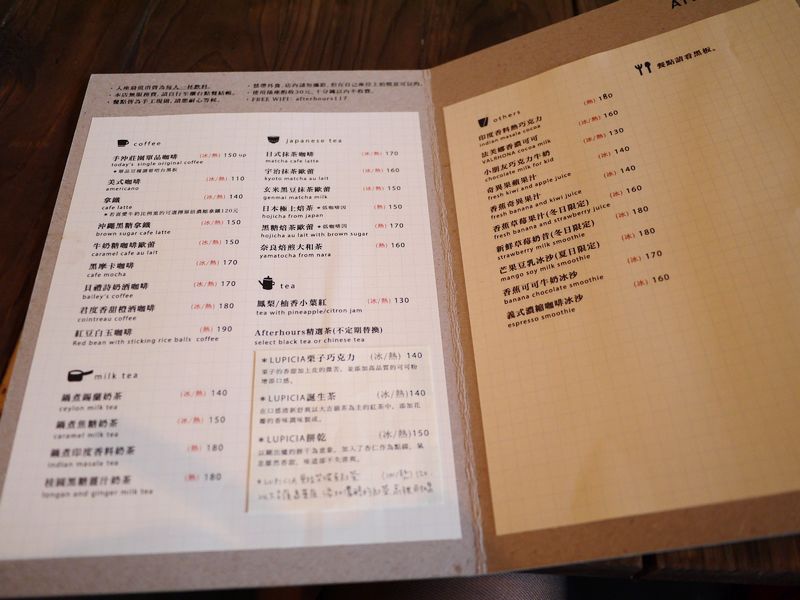 ・入座最低消費為每人一杯飲料。
・本店無服務費，請自行至櫃台點餐結帳。
・餐點皆為手工現做，請您耐心等候。
・使用插座酌收30元，十分鐘以內不收費。
・FREE WIFI: afterhours117
coffee
手沖莊園單品咖啡 (冰/熱) 150 up
today's single original coffee
美式咖啡 (冰/熱) 110
americano
拿鐵 (冰/熱) 140
cafe latte
沖繩黑糖拿鐵 (冰/熱) 150
brown sugar cafe latte
牛奶糖咖啡歐蕾 (冰/熱) 150
caramel cafe au lait
黑摩卡咖啡 (冰/熱) 170
cafe mocha
貝禮詩奶酒咖啡 (冰/熱) 170
bailey's coffee
君度香甜橙酒咖啡 (冰/熱) 180
cointreau coffee
紅豆白玉咖啡 (熱) 190
Red bean with sticking rice balls coffee
milk tea
鍋煮錫蘭奶茶 (冰/熱) 140
ceylon milk tea
鍋煮焦糖奶茶 (冰/熱) 150
caramel milk tea
鍋煮印度香料奶茶 (熱) 180
indian masale tea
桂圓黑糖薑汁奶茶 (熱) 180
longan and ginger milk tea
japanese tea
日式抹茶咖啡 (冰/熱) 170
matcha cafe latte
宇治抹茶歐蕾 (冰/熱) 160
kyoto matcha au lait
玄米黑豆抹茶歐蕾 (冰/熱) 150
genmai matcha milk
日本極上焙茶 ＊低咖啡因 (熱) 150
hojicha from japan
黑糖焙茶歐蕾 ＊低咖啡因 (熱) 170
hojicha au lait with brown sugar
奈良焙煎大和茶 (熱) 160
yamatocha from nara
tea
鳳梨/柚香小葉紅 (冰/熱) 130
tea with pineapple/citron jam
Afterhours精選茶(不定期替換)
select black tea or chinese tea
＊LUPICIA栗子巧克力 (冰/熱) 140
栗子的香甜加上皮的微苦，並添加高品質的可可粉
增添口感。
＊LUPICIA誕生茶 (冰/熱)140
＊LUPICIA餅乾 (冰/熱)150
＊LUPICIA (冰/熱)
餐點請看黑板。
others
印度香料熱巧克力 (熱) 180
indian masale cocoa
法芙娜香濃可可 (冰/熱) 160
VALRHONA cocoa milk
小朋友巧克力牛奶 (冰/熱) 130
chocolate milk for kid
奇異果蘋果汁 (冰) 140
fresh kiwi and apple juice
香蕉奇異果汁 (冰) 140
fresh banana and kiwi juice
香蕉草莓果汁(冬日限定) (冰) 160
fresh banana and strawberry juice
新鮮草莓奶昔(冬日限定) (冰) 180
strawberry milk smoothie
芒果豆乳冰沙(夏日限定) (冰) 180
mango soy milk smoothie
香蕉可可牛奶冰沙 (冰) 170
banana chocolate smoothie
義式濃縮咖啡冰沙 (冰) 160
espresso smoothie